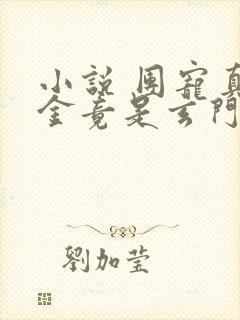 小說 團寵真
金竟是玄門
劉加莹